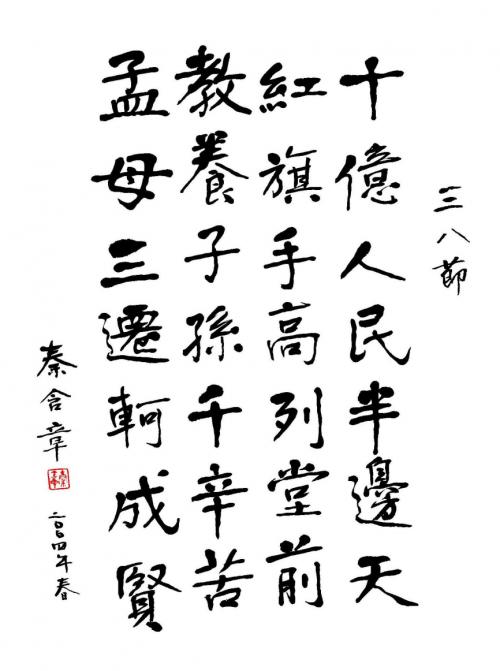 三八節
十億人民半邊天
紅旗手高列堂前
教養子孫千辛苦
孟母三遷軻成賢
秦含章
二〇〇四年春